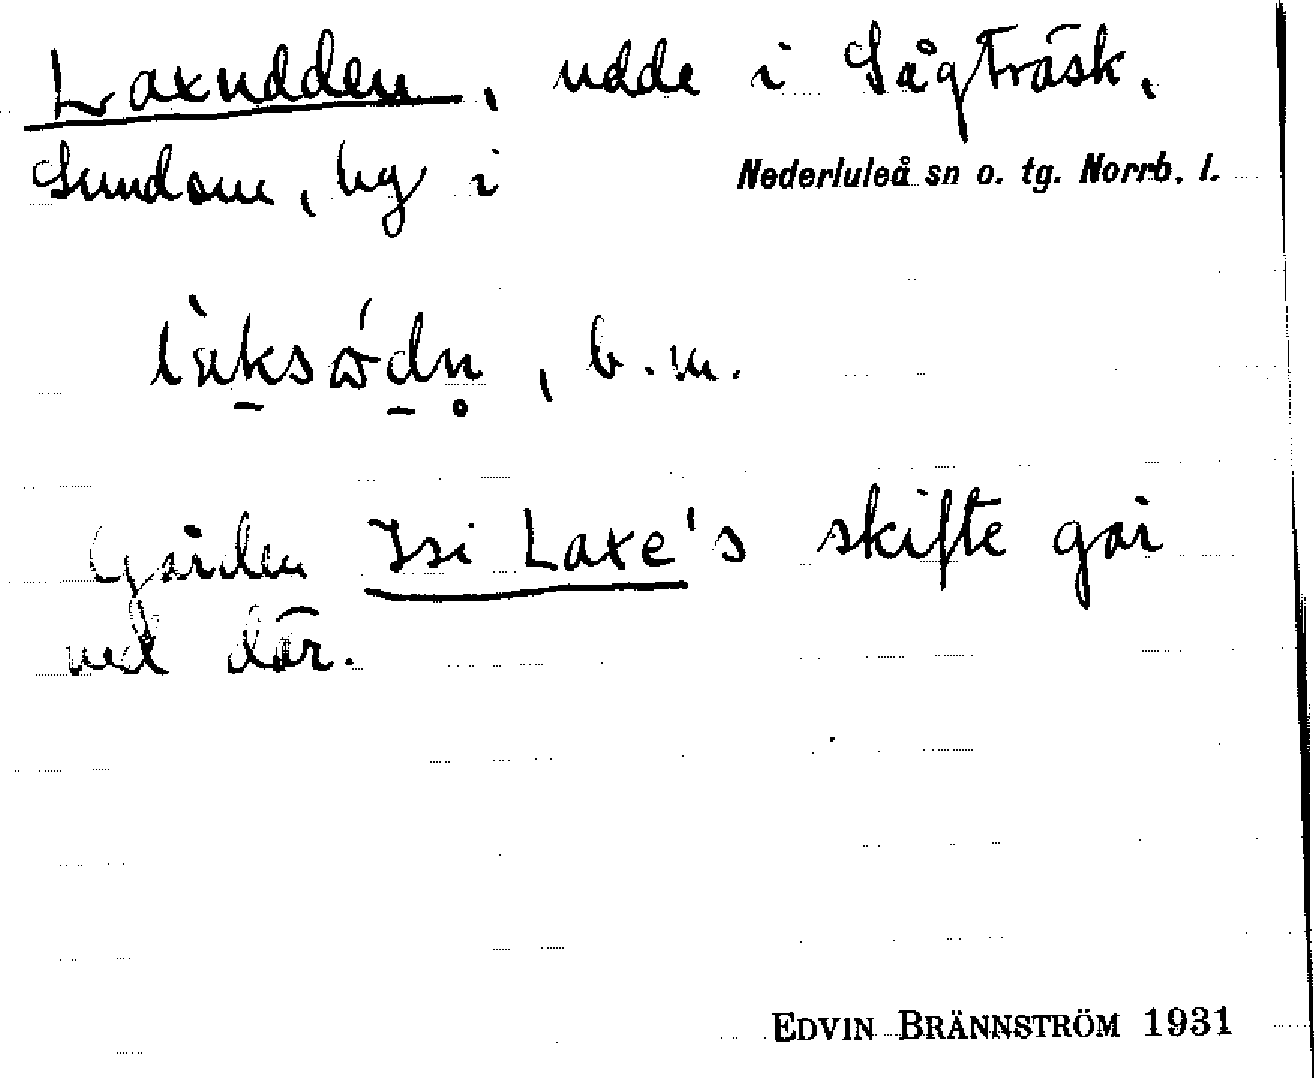 Laxudden, udde i Sågträsk,
Sundom, by i Nederluleå sn o. tg. Norrb. l.
, b. m.
Gården Isi Laxe's skifte går
ned där.
EDVIN BRÄNNSTRÖM 1931